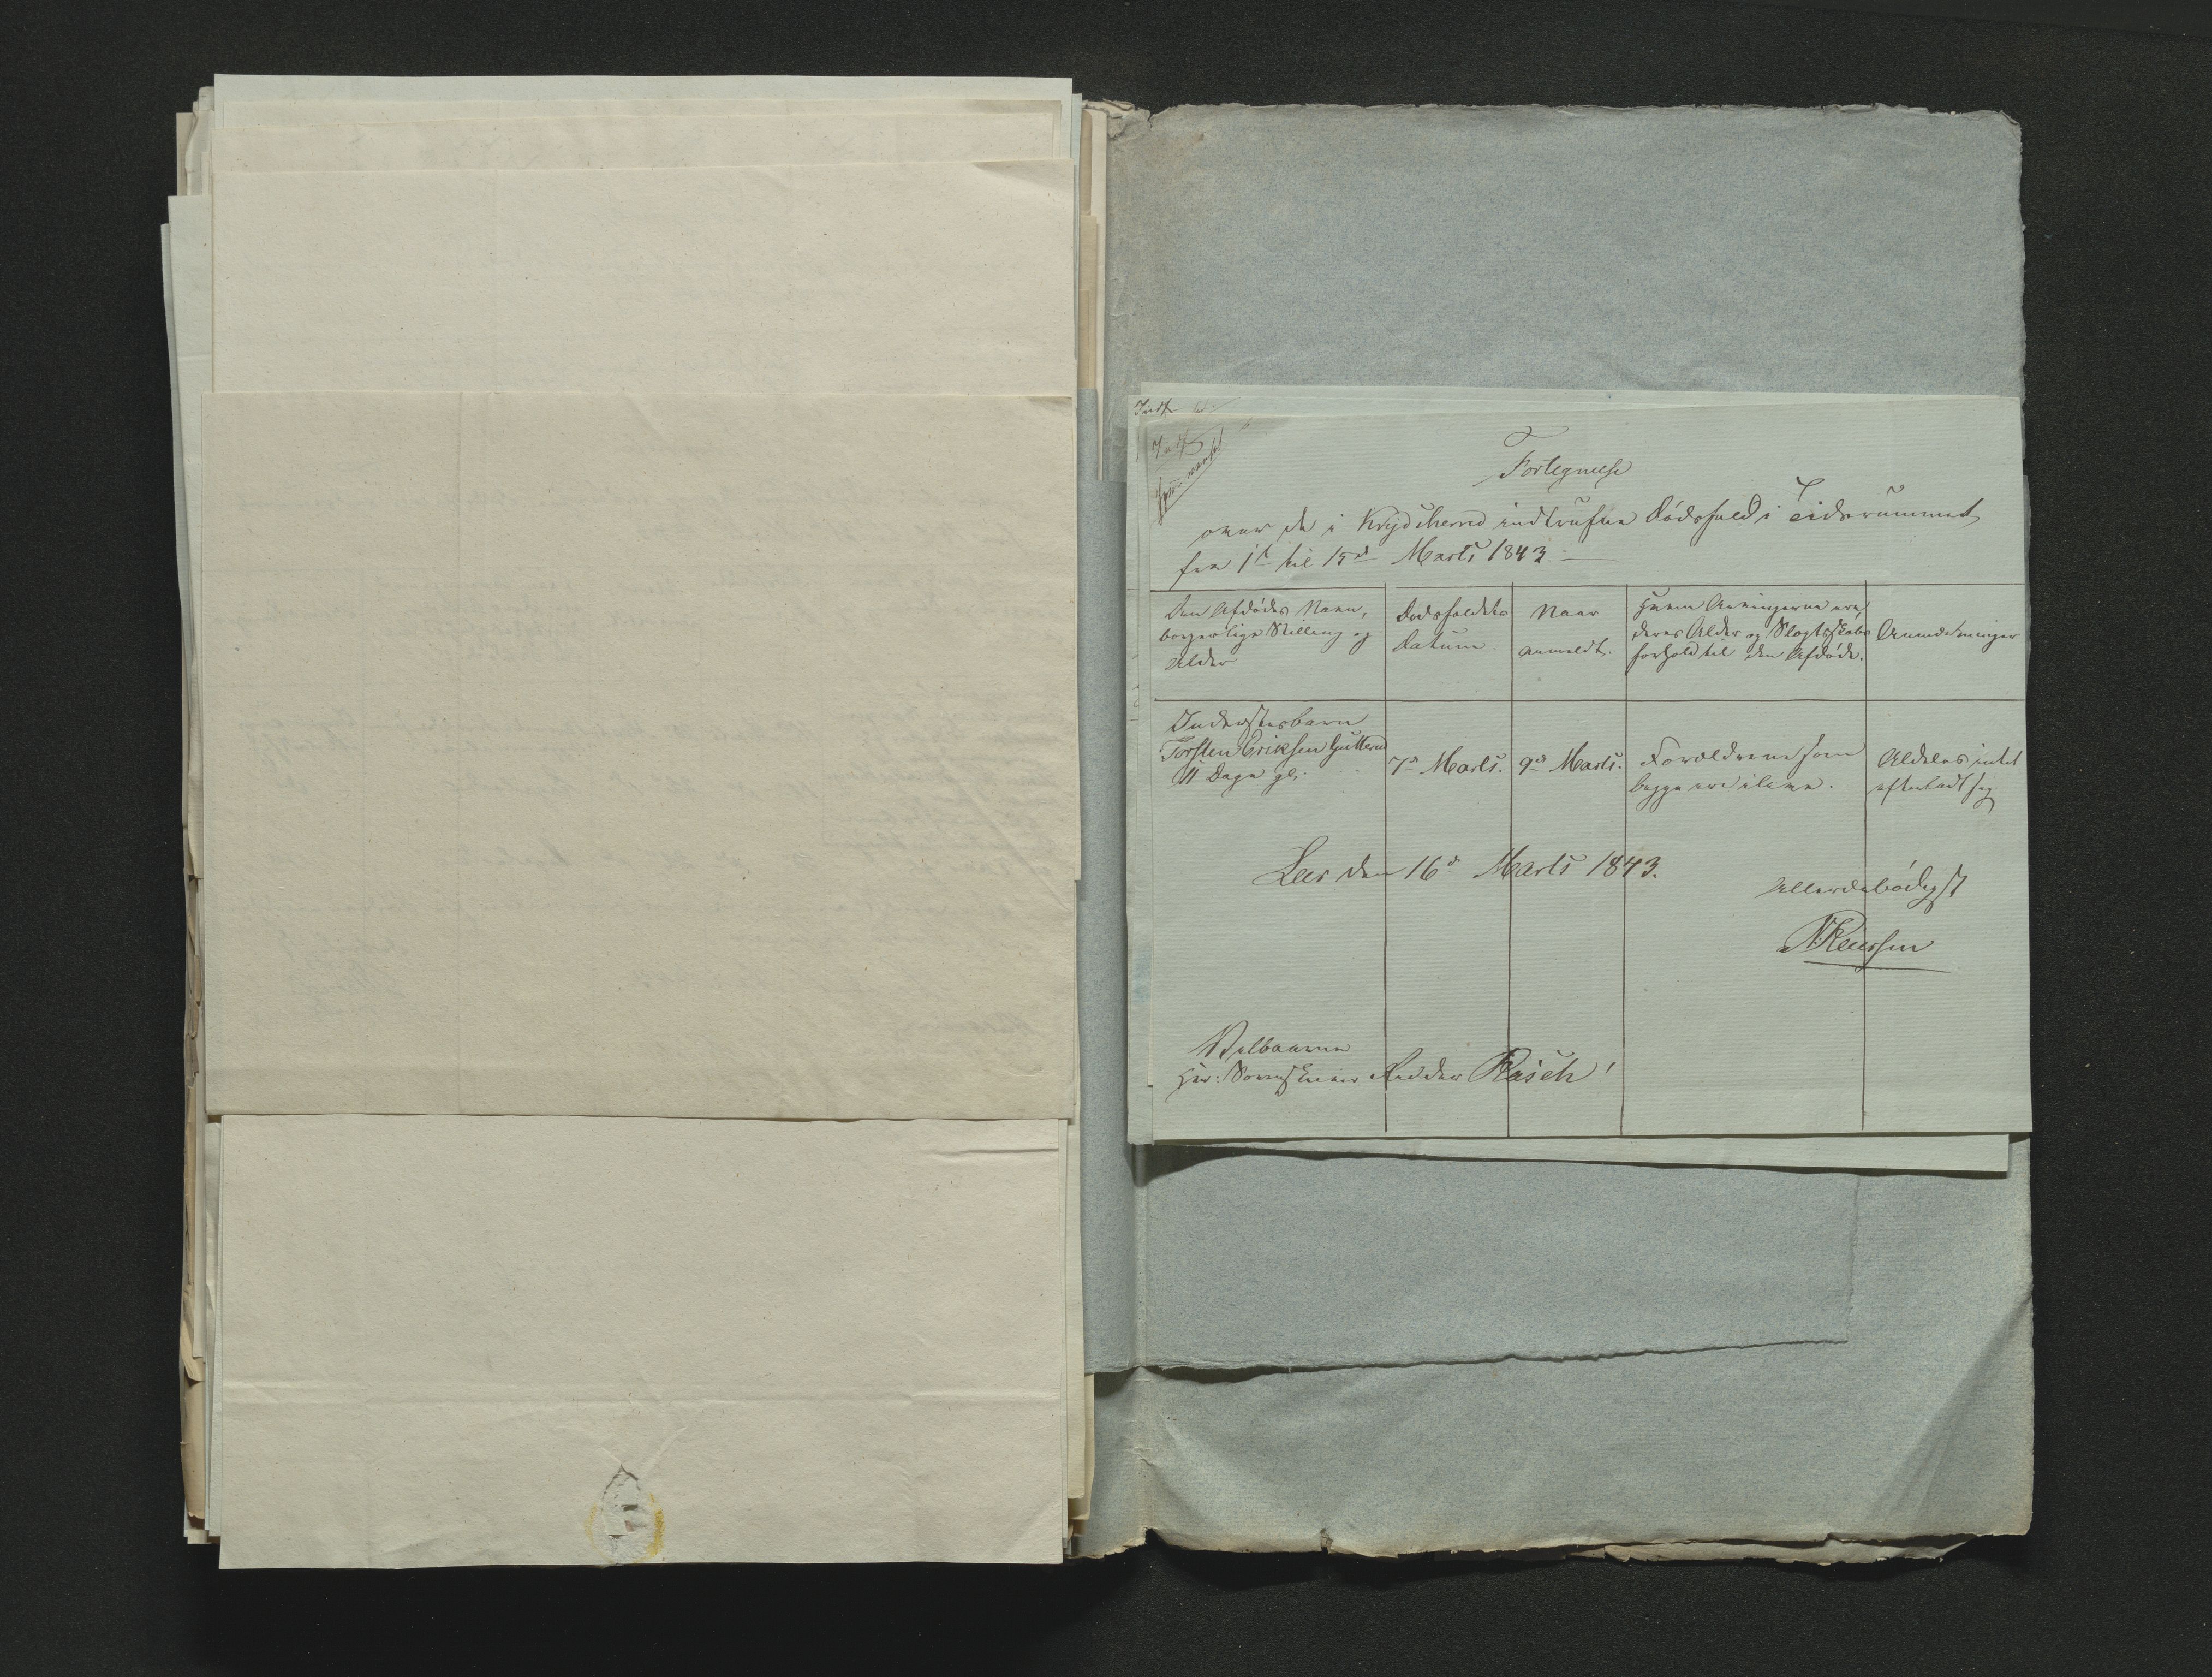 Fortegnelse
over de i Krydsherred indtrufne Dödsfald i Tidsrummet
fra 1ste til 15de Marts 1843
Den Afdödes Navn,
borgerlige Stilling og
Alder
Dödsfaldets
Datum.
Naar
anmeldt.
Hvem Arvingerne ere,
deres Alder og Slægtskabs
forhold til den Afdöde.
Anmærkninger
Inderstesbarn
Torsten Eriksen
11 Dage gl.
7de Marts.
9de Marts.
Forældrene som
begge ere ilive.
Aldeles intet
efterladt sig
Leer den 16de Marts 1843.
Allerærbödigst
Velbaarne
Herr Sorenskriver Ridder Rasch!